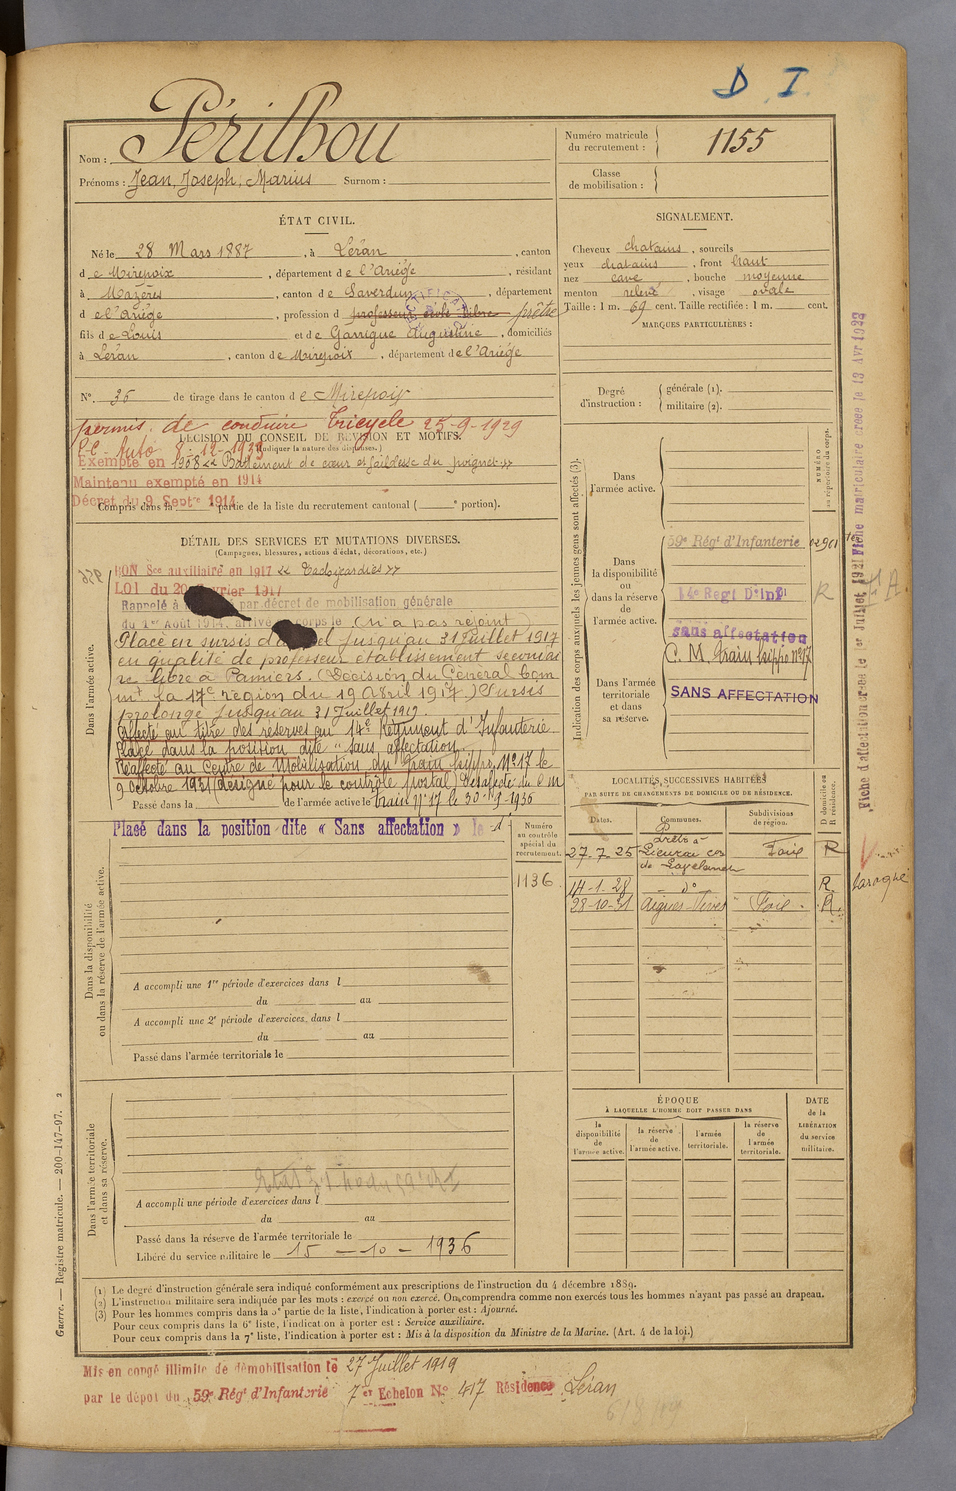 D. I.
Nom : Périlhou
Prénoms : Jean, Joseph, Marius Surnom :
Numéro matricule du recrutement : 1155
Classe de mobilisation :
ÉTAT CIVIL.
Né le 28 Mars 1887, à Léran, canton
de Mirepoix, département de l'Ariège, résidant
à Mazères, canton de Saverdun, département
de l'Ariège, profession d professeur école libre prêtre
fils de Louis et de Garrigue Augustine, domiciliés
à Léran, canton de Mirepoix, département de l'Ariège
N° 36 de tirage dans le canton de Mirepoix
SIGNALEMENT.
Cheveux chatains, sourcils
yeux chatains, front haut
nez cave, bouche moyenne
menton relevé, visage ovale
Taille : 1 m. 69 cent. Taille rectifiée : 1 m. cent.
MARQUES PARTICULIÈRES :
Degré d'instruction : générale (1).
militaire (2).
permis de conduire Tricycle 25-9-1929
DÉCISION DU CONSEIL DE RÉVISION ET MOTIFS.
(Indiquer la nature des dispenses.)
Auto 8-12-1939
Exempté en 1908 << Battement de cœur et faiblesse du poignet >>
Maintenu exempté en 1914
Décret du 9 Sept.re 1914
Compris dans la partie de la liste du recrutement cantonal ( e portion).
DÉTAIL DES SERVICES ET MUTATIONS DIVERSES.
(Campagnes, blessures, actions d'éclat, décorations, etc.)
Dans l'armée active.
BON Sce auxiliaire en 1917 << Tachycardies >>
LOI du 20 Février 1917
Rappelé à par décret de mobilisation générale
du 1er Août 1914, arrivé au corps le (n'a pas rejoint)
Placé en sursis d'appel jusqu'au 31 juillet 1917
en qualité de professeur établissement secondai
re libre à Pamiers. (Décision du Général Com
mt la 17e région du 19 Avril 1917.) Sursis
prolongé jusqu'au 31 Juillet 1919.
Affecté au titre des réserves au 14e Régiment d'Infanterie
Placé dans la position dite "sans affectation"
Réaffecté au Centre de Mobilisation du Train hippo N° 17 le
9 Octobre 1931 (désigné pour le contrôle postal) Désaffecté du C M
Passé dans la de l'armée active le Train N° 17 le 30-9-1936
Placé dans la position dite « Sans affectation » le
Numéro au contrôle spécial du recrutement.
1136
Dans la disponibilité ou dans la réserve de l'armée active.
A accompli une 1re période d'exercices dans l
du au
A accompli une 2e période d'exercices, dans l
du au
Passé dans l'armée territoriale le
Dans l'armée territoriale et dans sa réserve.
A accompli une période d'exercices dans l
du au
Passé dans la réserve de l'armée territoriale le
Libéré du service militaire le 15-10-1936
Indication des corps auxquels les jeunes gens sont affectés (3).
NUMÉRO au répertoire du corps.
Dans l'armée active.
Dans la disponibilité ou dans la réserve de l'armée active.
59e Régt d'Infanterie
14e Regt D'Infie
sans affectation
C. M. Train hippo N° 17
Dans l'armée territoriale et dans sa réserve.
SANS AFFECTATION
Fiche d'affectation créée le 1er Juillet 1921
Fiche matriculaire créée le 13 Avr 1923
LOCALITÉS SUCCESSIVES HABITÉES
PAR SUITE DE CHANGEMENTS DE DOMICILE OU DE RÉSIDENCE.
Dates. Communes. Subdivisions de région. D domicile ou R résidence.
27-7-25 Lieurac Foix R
14-1-28 do R.
28-10-31 Aigues-Vives Foix R.
ÉPOQUE
À LAQUELLE L'HOMME DOIT PASSER DANS
la disponibilité de l'armée active. la réserve de l'armée active. l'armée territoriale. la réserve de l'armée territoriale.
DATE de la LIBÉRATION du service militaire.
(1) Le degré d'instruction générale sera indiqué conformément aux prescriptions de l'instruction du 4 décembre 1889.
(2) L'instruction militaire sera indiquée par les mots : exercé ou non exercé. On comprendra comme non exercés tous les hommes n'ayant pas passé au drapeau.
(3) Pour les hommes compris dans la 5e partie de la liste, l'indication à porter est : Ajourné.
Pour ceux compris dans la 6e liste, l'indication à porter est : Service auxiliaire.
Pour ceux compris dans la 7e liste, l'indication à porter est : Mis à la disposition du Ministre de la Marine. (Art. 4 de la loi.)
Guerre. — Registre matricule. — 200-147-97. 2
Mis en congé illimité de démobilisation le 27 Juillet 1919
par le dépot du 59e Régt d'Infanterie 7e Echelon N° 417 Résidence Léran